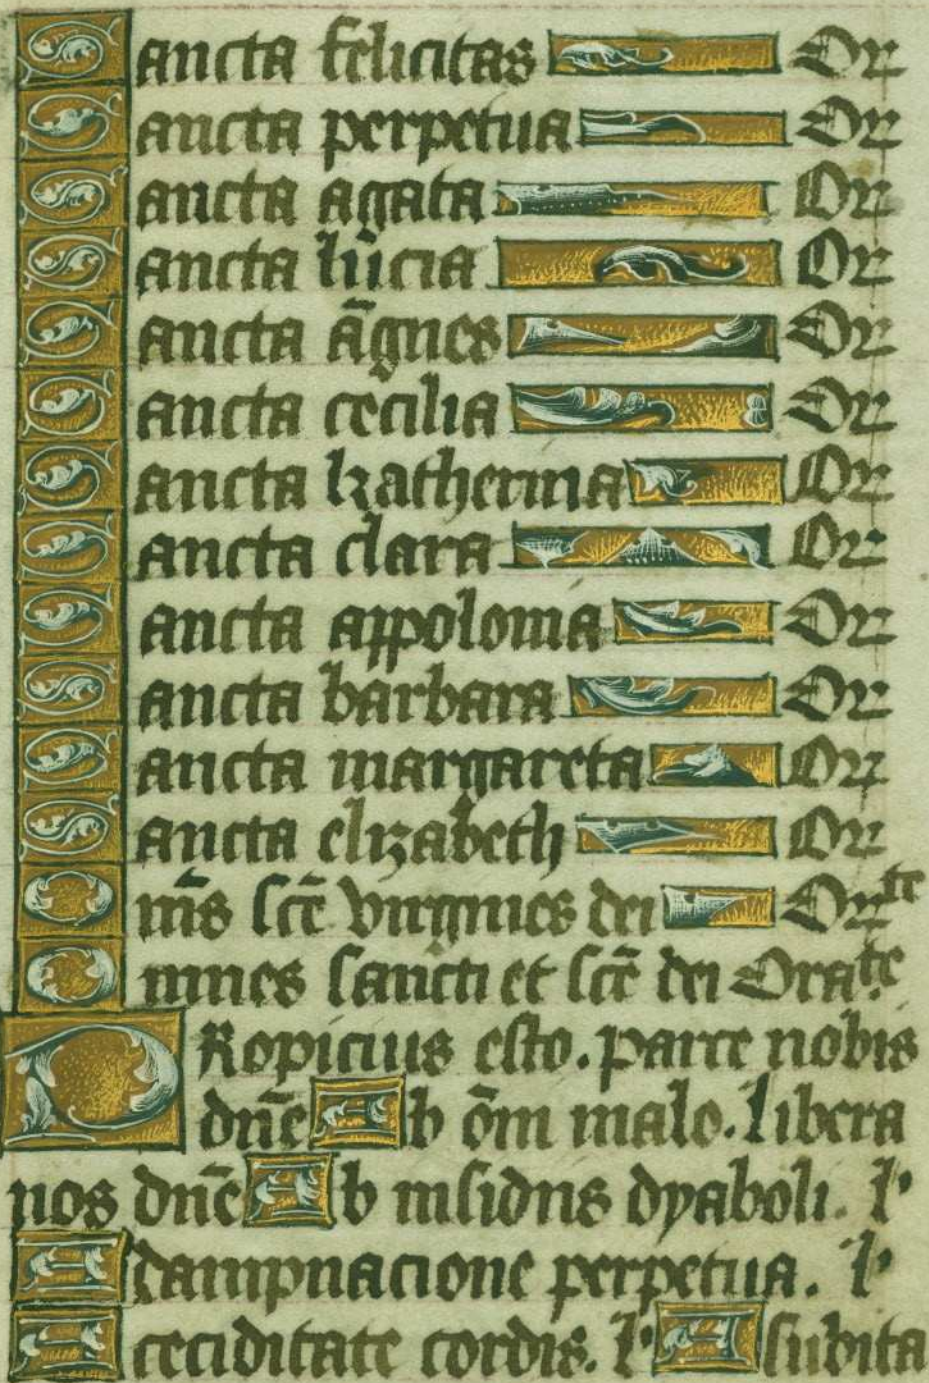 Sancta felicitas Or
Sancta perpetua Or
Sancta agata Or
Sancta lucia Or
Sancta agnes Or
Sancta cecilia Or
Sancta katherina Or
Sancta clara Or
Sancta appolonia Or
Sancta barbara Or
Sancta margareta Or
Sancta elizabeth Or
Om̄s sc̄e virgines dei Orate
Omnes sancti et sc̄e dei Orate
PRopicius esto. parce nobis
dn̄e Ab om̄i malo. libera
nos dn̄e Ab insidiis dyaboli. l'
A dampnacione perpetua. l'
A ceciditate cordis. l' A subita